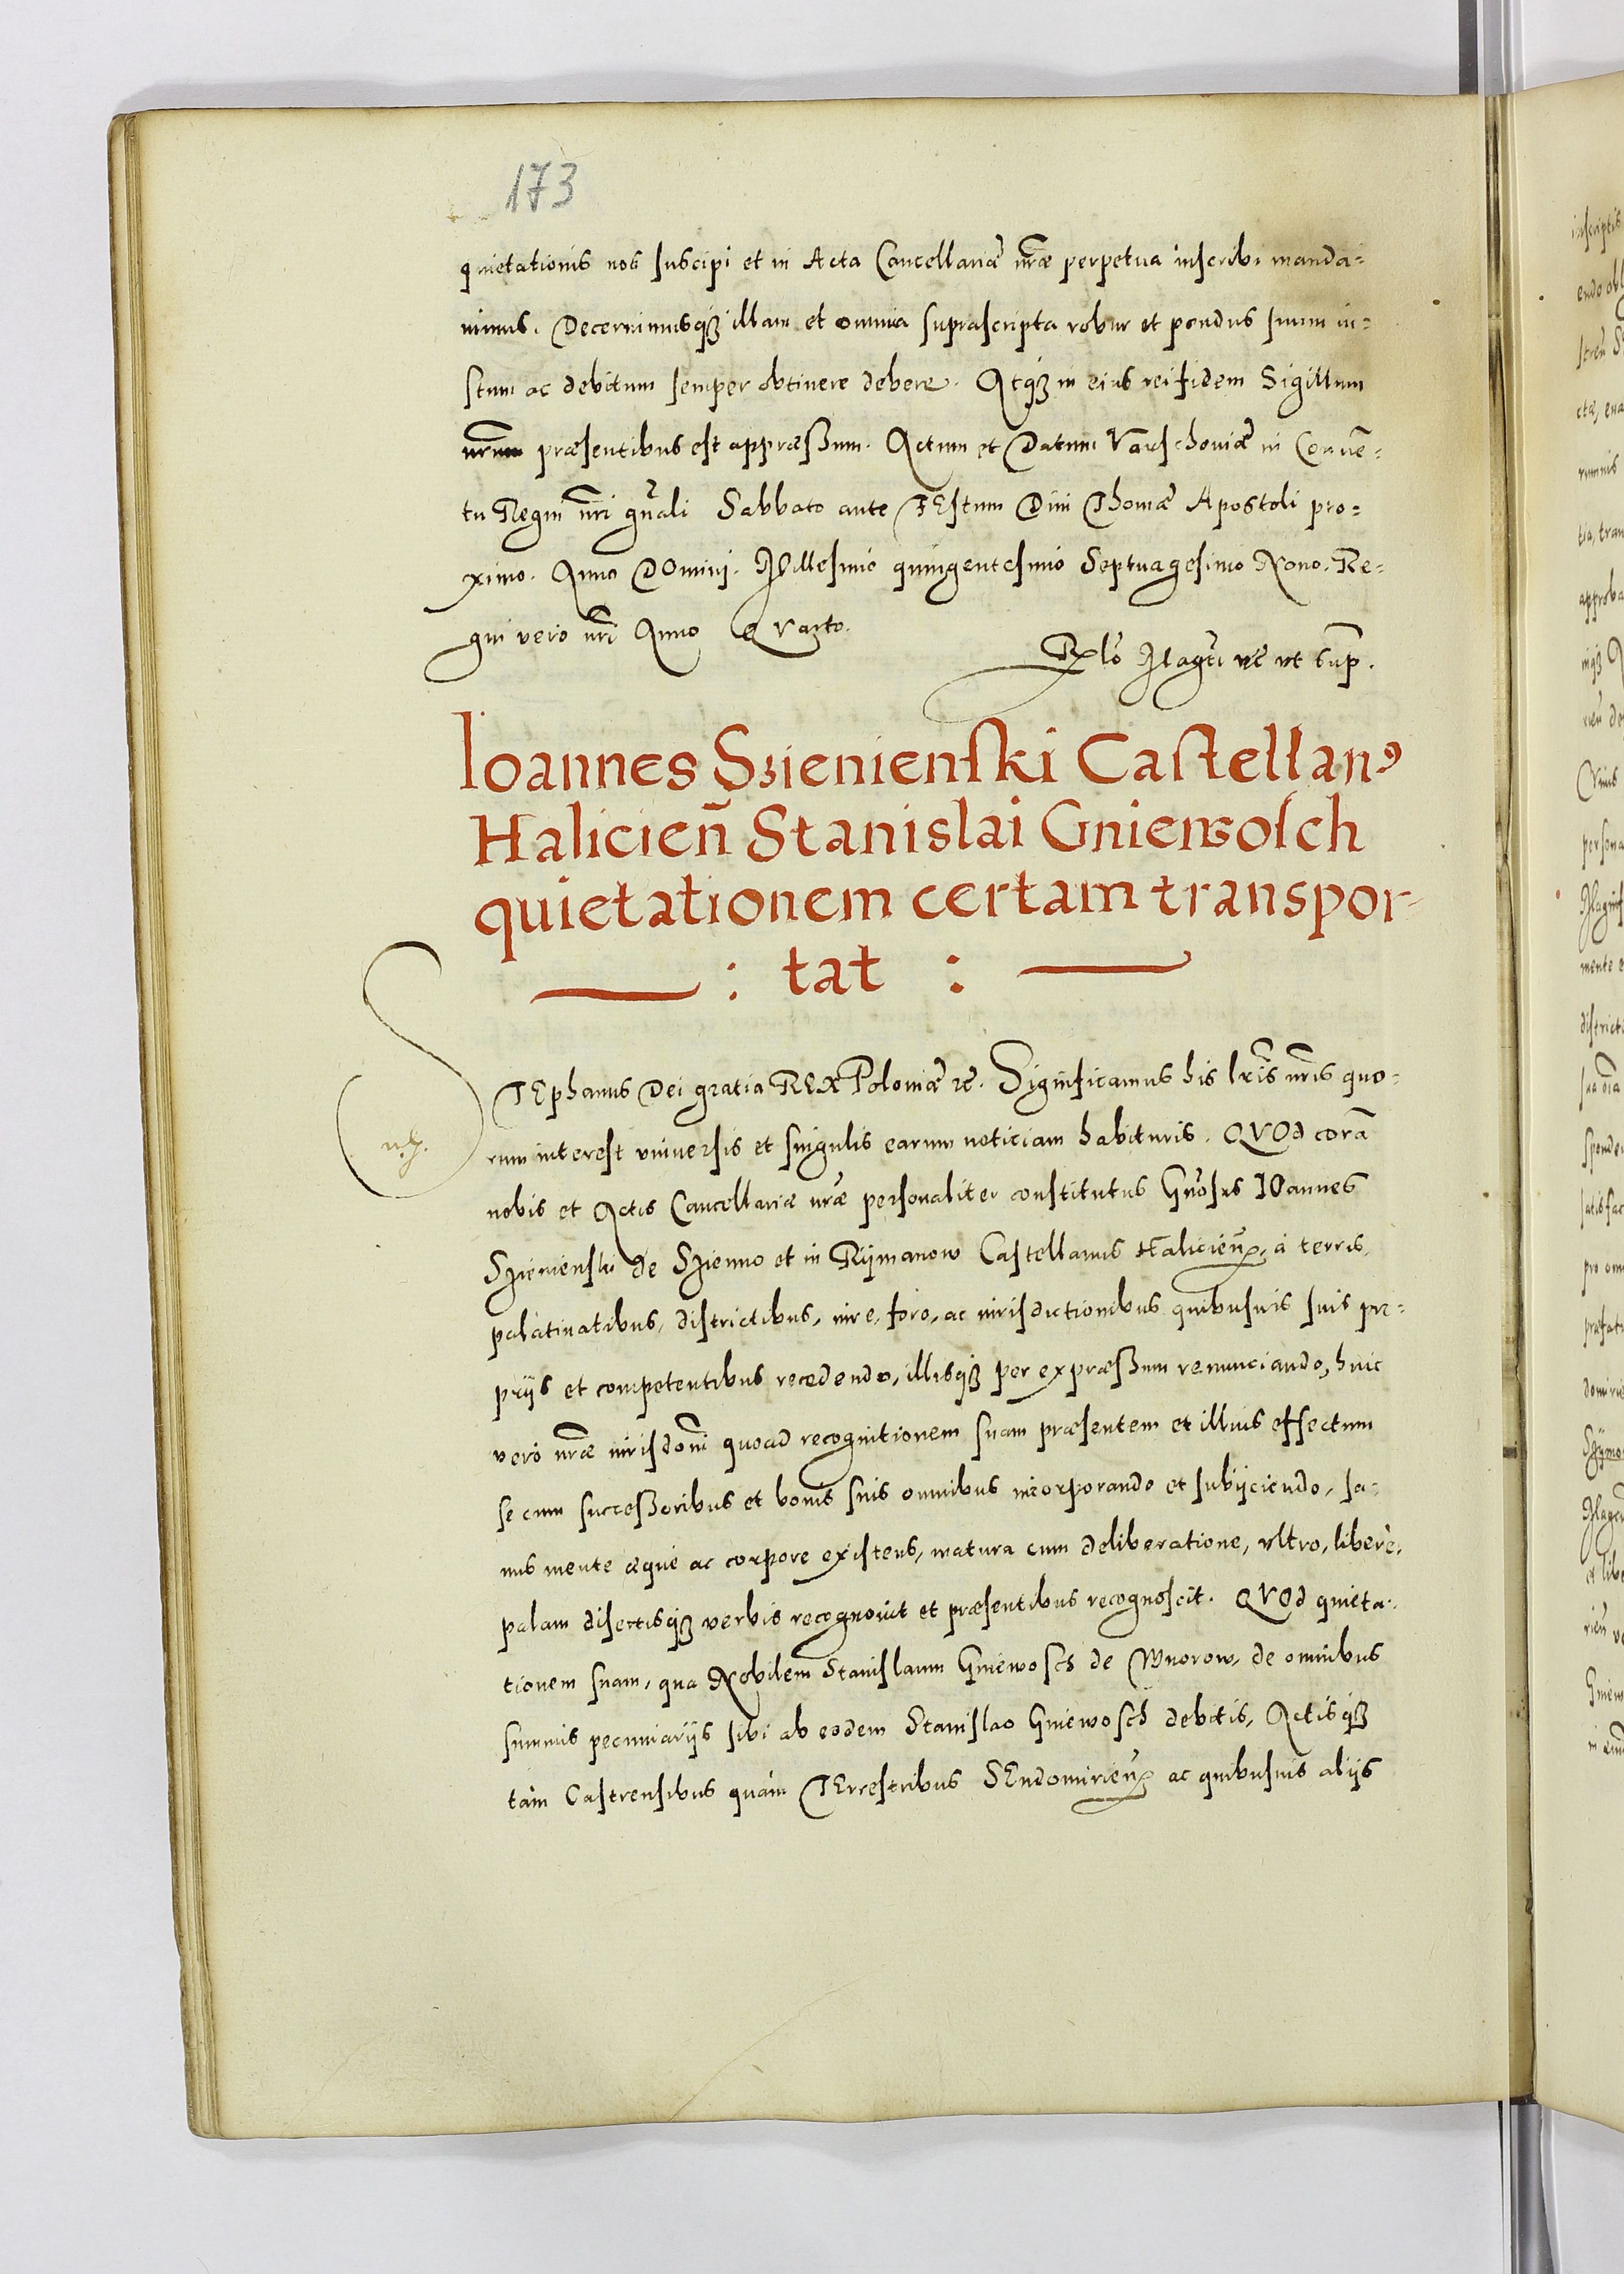 173
quietationis nos suscipi et in Acta Cancellariæ nr̃æ perpetua inscribi manda=
uimus. Decernimusq3 illam et omnia suprascripta robur et pondus suum iu=
stum ac debitum semper obtinere debere. Atq3 in eius rei fidem Sigillum
nr̃um præsentibus est appræssum. Actum et Datum Varschouiæ in Conuẽ=
tu Regni nr̃i gñali Sabbato ante FEstum Diui Thomæ Apostoli pro=
ximo. Anno DOmini. Millesimo quingentesimo Septuagesimo Nono. Re=
gni vero nr̃i Anno QVarto.
Rlõ Magci ut sup.
Ioannes Szienienski Castellanꝰ
Halicień Stanislai Gniewosch
quietationem certam transpor-
: tat :
STEphanus Dei gratia REX Poloniæ &c. Significamus his lr̃is nr̃is quo=
rum interest vniuersis et singulis earum noticiam habituris. QVOd corã
nobis et Actis Cancellariæ nr̃æ personaliter constitutus Gñosus IOannes
Szienienski de Szienno et in Rijmanow Castellanus Halicieñ, à terris,
palatinatibus, districtibus, iure, foro, ac iurisdictionibus quibusuis suis pro=
prijs et competentibus recedendo, illisq3 per expræssum renunciando, huic
vero nr̃æ iurisdoni quoad recognitionem suam præsentem et illius effectum
se cum successoribus et bonis suis omnibus incorporando et subijciendo, sa=
nus mente æque ac corpore existens, matura cum deliberatione, vltro, liberè,
palam disertisq3 verbis recognouit et præsentibus recognoscit. QVOd quieta=
tionem suam, qua Nobilem Stanislaum Gniewosch de Wnorow, de omnibus
summis pecuniarijs sibi ab eodem Stanislao Gniewosch debitis, Actisq3
tàm Castrensibus quàm TErrestribus SEndomirieñ ac quibusuis alijs